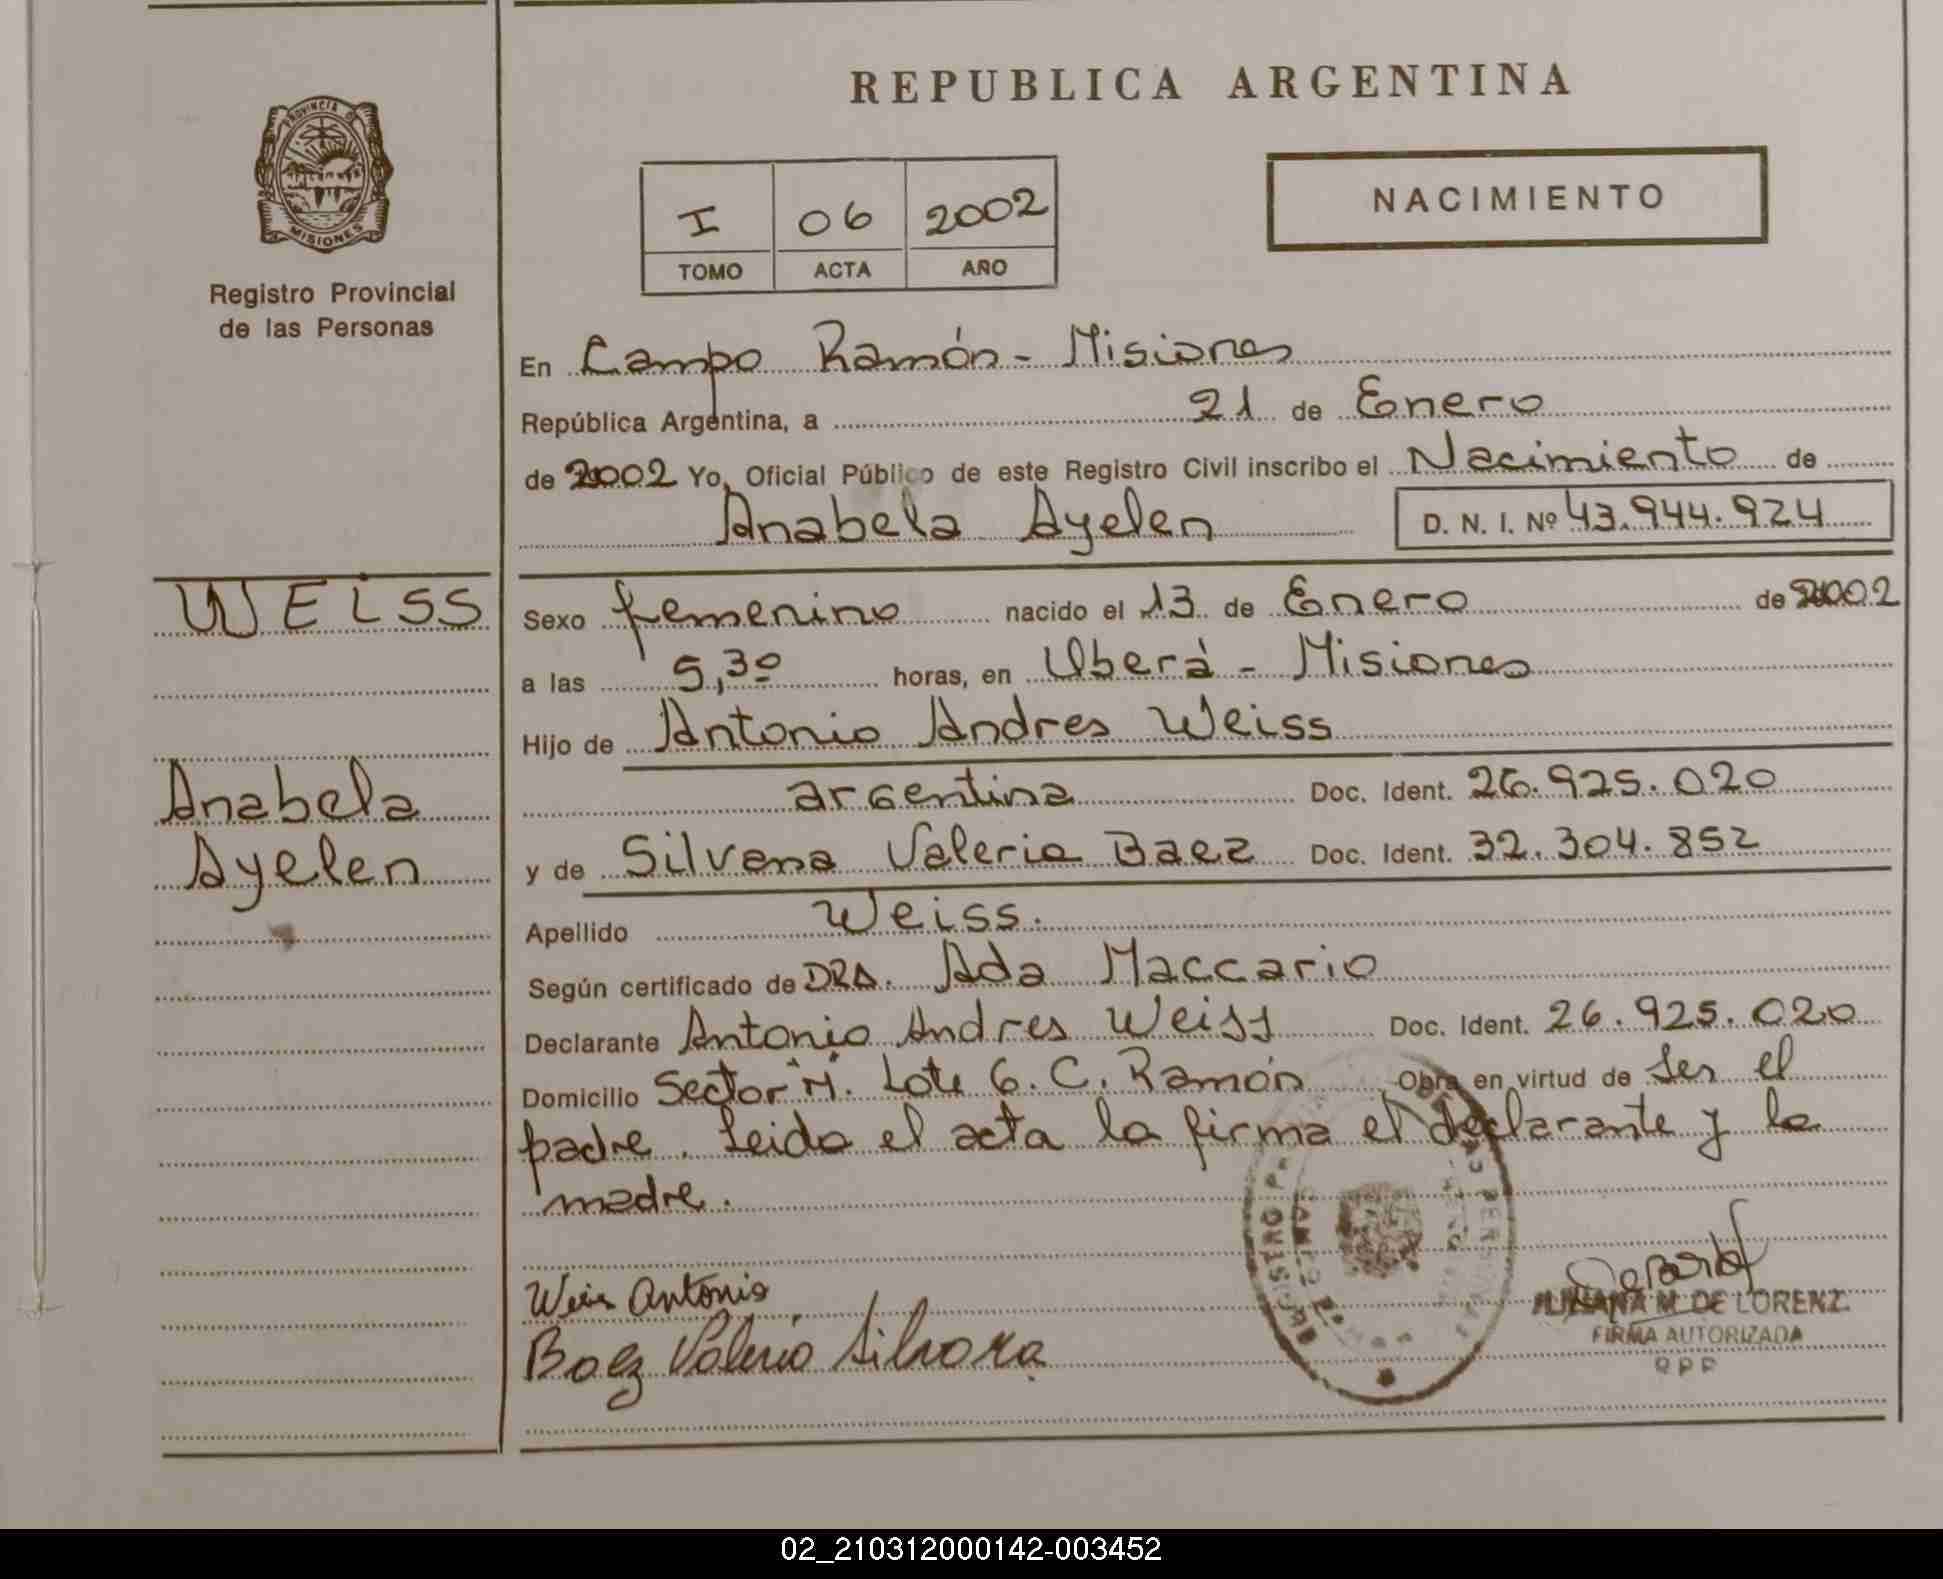 REPUBLICA ARGENTINA
PROVINCIA DE
MISIONES
Registro Provincial
de las Personas
I 06 2002
TOMO ACTA AÑO
NACIMIENTO
En Campo Ramón - Misiones
República Argentina, a 21 de Enero
de 2002 Yo, Oficial Público de este Registro Civil inscribo el Nacimiento de
Anabela Ayelen D. N. I. Nº 43.944.924
WEISS
Anabela
Ayelen
Sexo femenino nacido el 13 de Enero de 2002
a las 5,30 horas, en Oberá - Misiones
Hijo de Antonio Andres Weiss
argentina Doc. Ident. 26.925.020
y de Silvana Valeria Baez Doc. Ident. 32.304.852
Apellido Weiss.
Según certificado de DRA. Ada Maccario
Declarante Antonio Andres Weiss Doc. Ident. 26.925.020
Domicilio Sector "M". Lote 6. C. Ramón Obra en virtud de ser el
padre. Leida el acta la firma el declarante y la
madre.
Weis Antonio
Baez Valeria Silvana
M. DE LORENZ
FIRMA AUTORIZADA
RPP
02_210312000142-003452